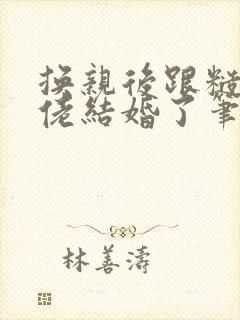 換親後跟糙
佬結婚了筆
林善濤